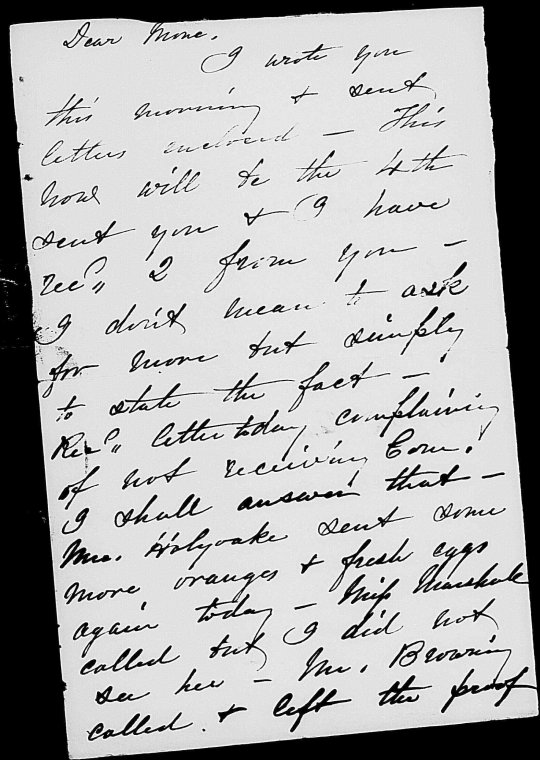 Dear Mone.
I wrote you
this morning & sent
letters enclosed — This
now will be the 4th
sent you & I have
rec'd 2 from you —
I don't mean to ask
for more but simply
to state the fact —
Rec'd letter today complaining
of not receiving Com.
I shall answer that —
Mrs. Holyoake sent some
more oranges & fresh eggs
again today — Miss Marshall
called but I did not
see her — Mr. Browning
called. & left the proof